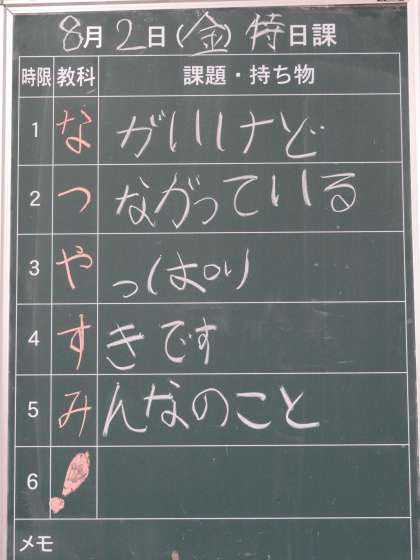 8月2日(金)特日課
時限 教科 課題・持ち物
1 な がいけど
2 つ ながっている
3 や っぱり
4 す きです
5 み んなのこと
6 !
メモ